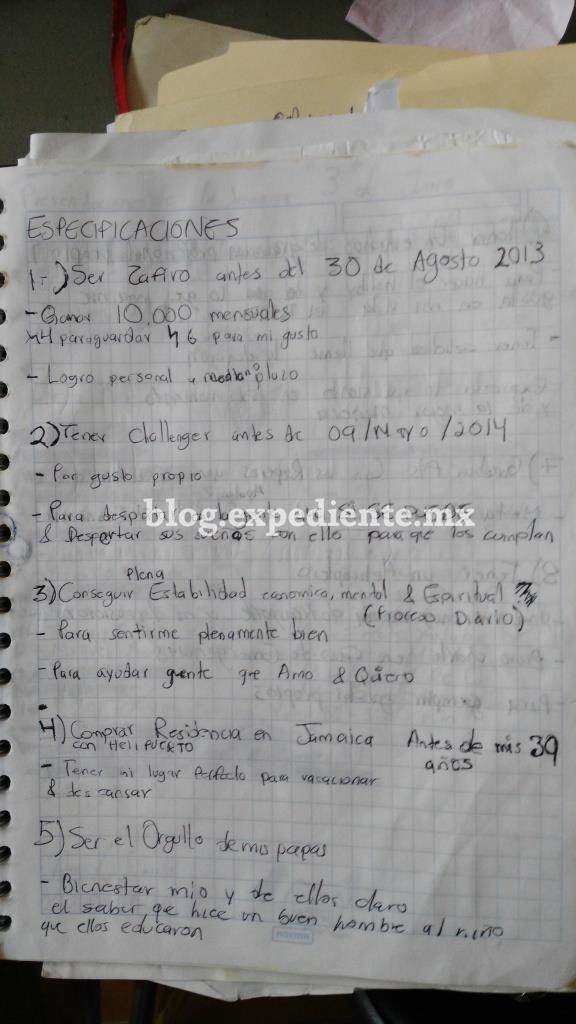 ESPECIFICACIONES
1.-) Ser Zafiro antes del 30 de Agosto 2013
- Ganar 10,000 mensuales
4 para guardar y 6 para mi gusto
- Logro personal a mediano plazo
2) Tener Challenger antes de 09/Mayo/2014
- Por gusto propio
- Para
blog.expediente.mx
& Despertar sus sueños con ello para que los cumplan
Plena
3) Conseguir Estabilidad economica, mental & Espiritual
(Proceso Diario)
- Para sentirme plenamente bien
- Para ayudar gente que Amo & Quiero
4) Comprar Residencia en Jamaica Antes de mis 39 años
con HeliPUERTO
- Tener mi lugar Perfecto para vacacionar
& descansar
5) Ser el Orgullo de mis papas
- Bienestar mio y de ellos claro
el saber que hice un buen hombre al niño
que ellos educaron